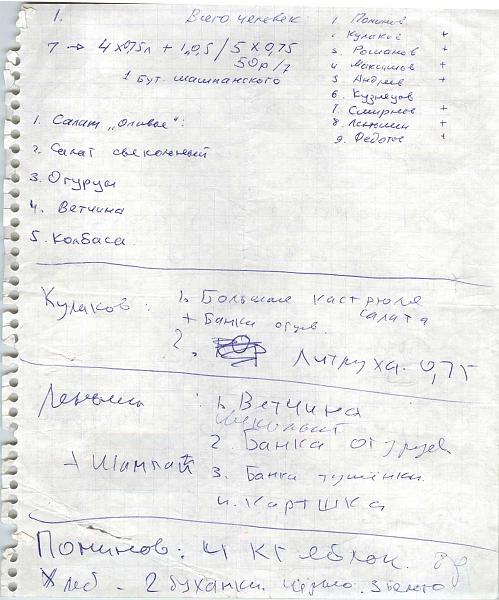 1. Всего человек:
7 → 4 x 0,75л + 1,0,5 / 5 x 0,75
50р/7
1 Бут. шашпанского
1 Поминов
2 Кулаков +
3. Романов +
4 Максимов +
5 Андреев +
6. Кузнецов
7. Смирнов +
8. Леньшин +
9. Федотов +
1. Салат „Оливье":
2. Салат свекольный
3. Огурцы
4. Ветчина
5. Колбаса
Кулаков: 1. Большая кастрюля
салата
+ Банка огур.
2. Литруха. 0,75
Леньшин : 1. Ветчина
2. Банка огурцов
+ Шампан 3. Банка тушёнки.
4. Картшка
Поминов: 4 кг яблок.
Хлеб - 2 буханки.